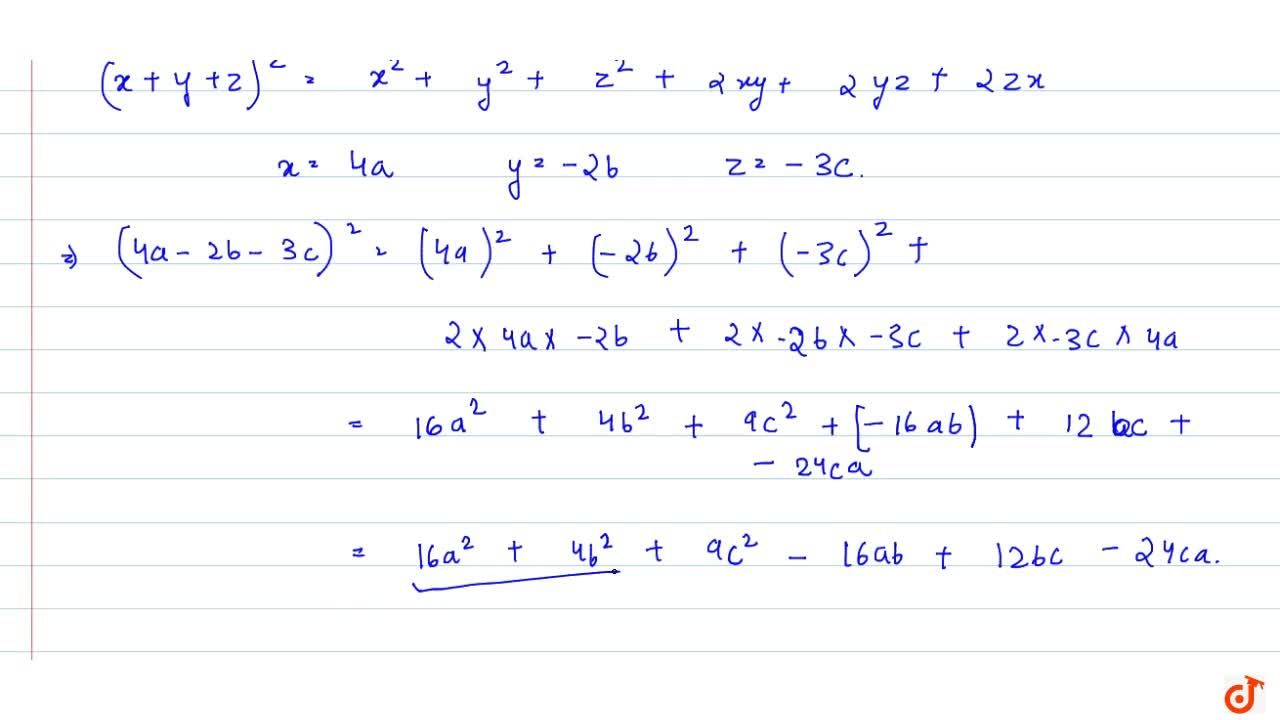 (x + y + z)² = x² + y² + z² + 2xy + 2yz + 2zx
x = 4a y = -2b z = -3c.
⇒ (4a - 2b - 3c)² = (4a)² + (-2b)² + (-3c)² +
2 × 4a × -2b + 2 × -2b × -3c + 2 × -3c × 4a
= 16a² + 4b² + 9c² + [-16ab) + 12 bc +
- 24ca
= 16a² + 4b² + 9c² - 16ab + 12bc - 24ca.